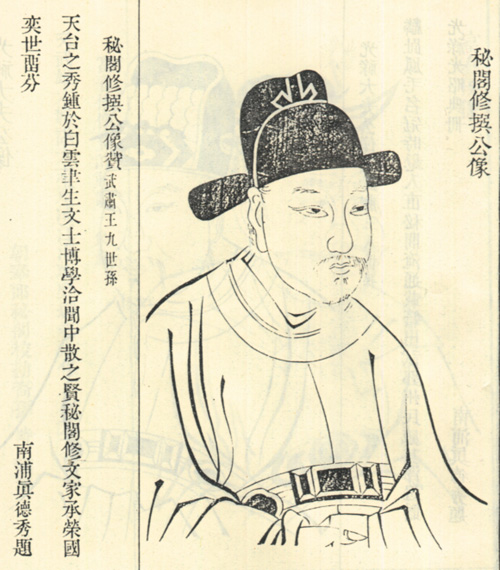 秘閣修撰公像
秘閣修撰公像贊 武肅王九世孫
天台之秀鍾於白雲聿生文士博學洽聞中散之賢秘閣修文家承榮國
奕世畱芬
南浦眞德秀題